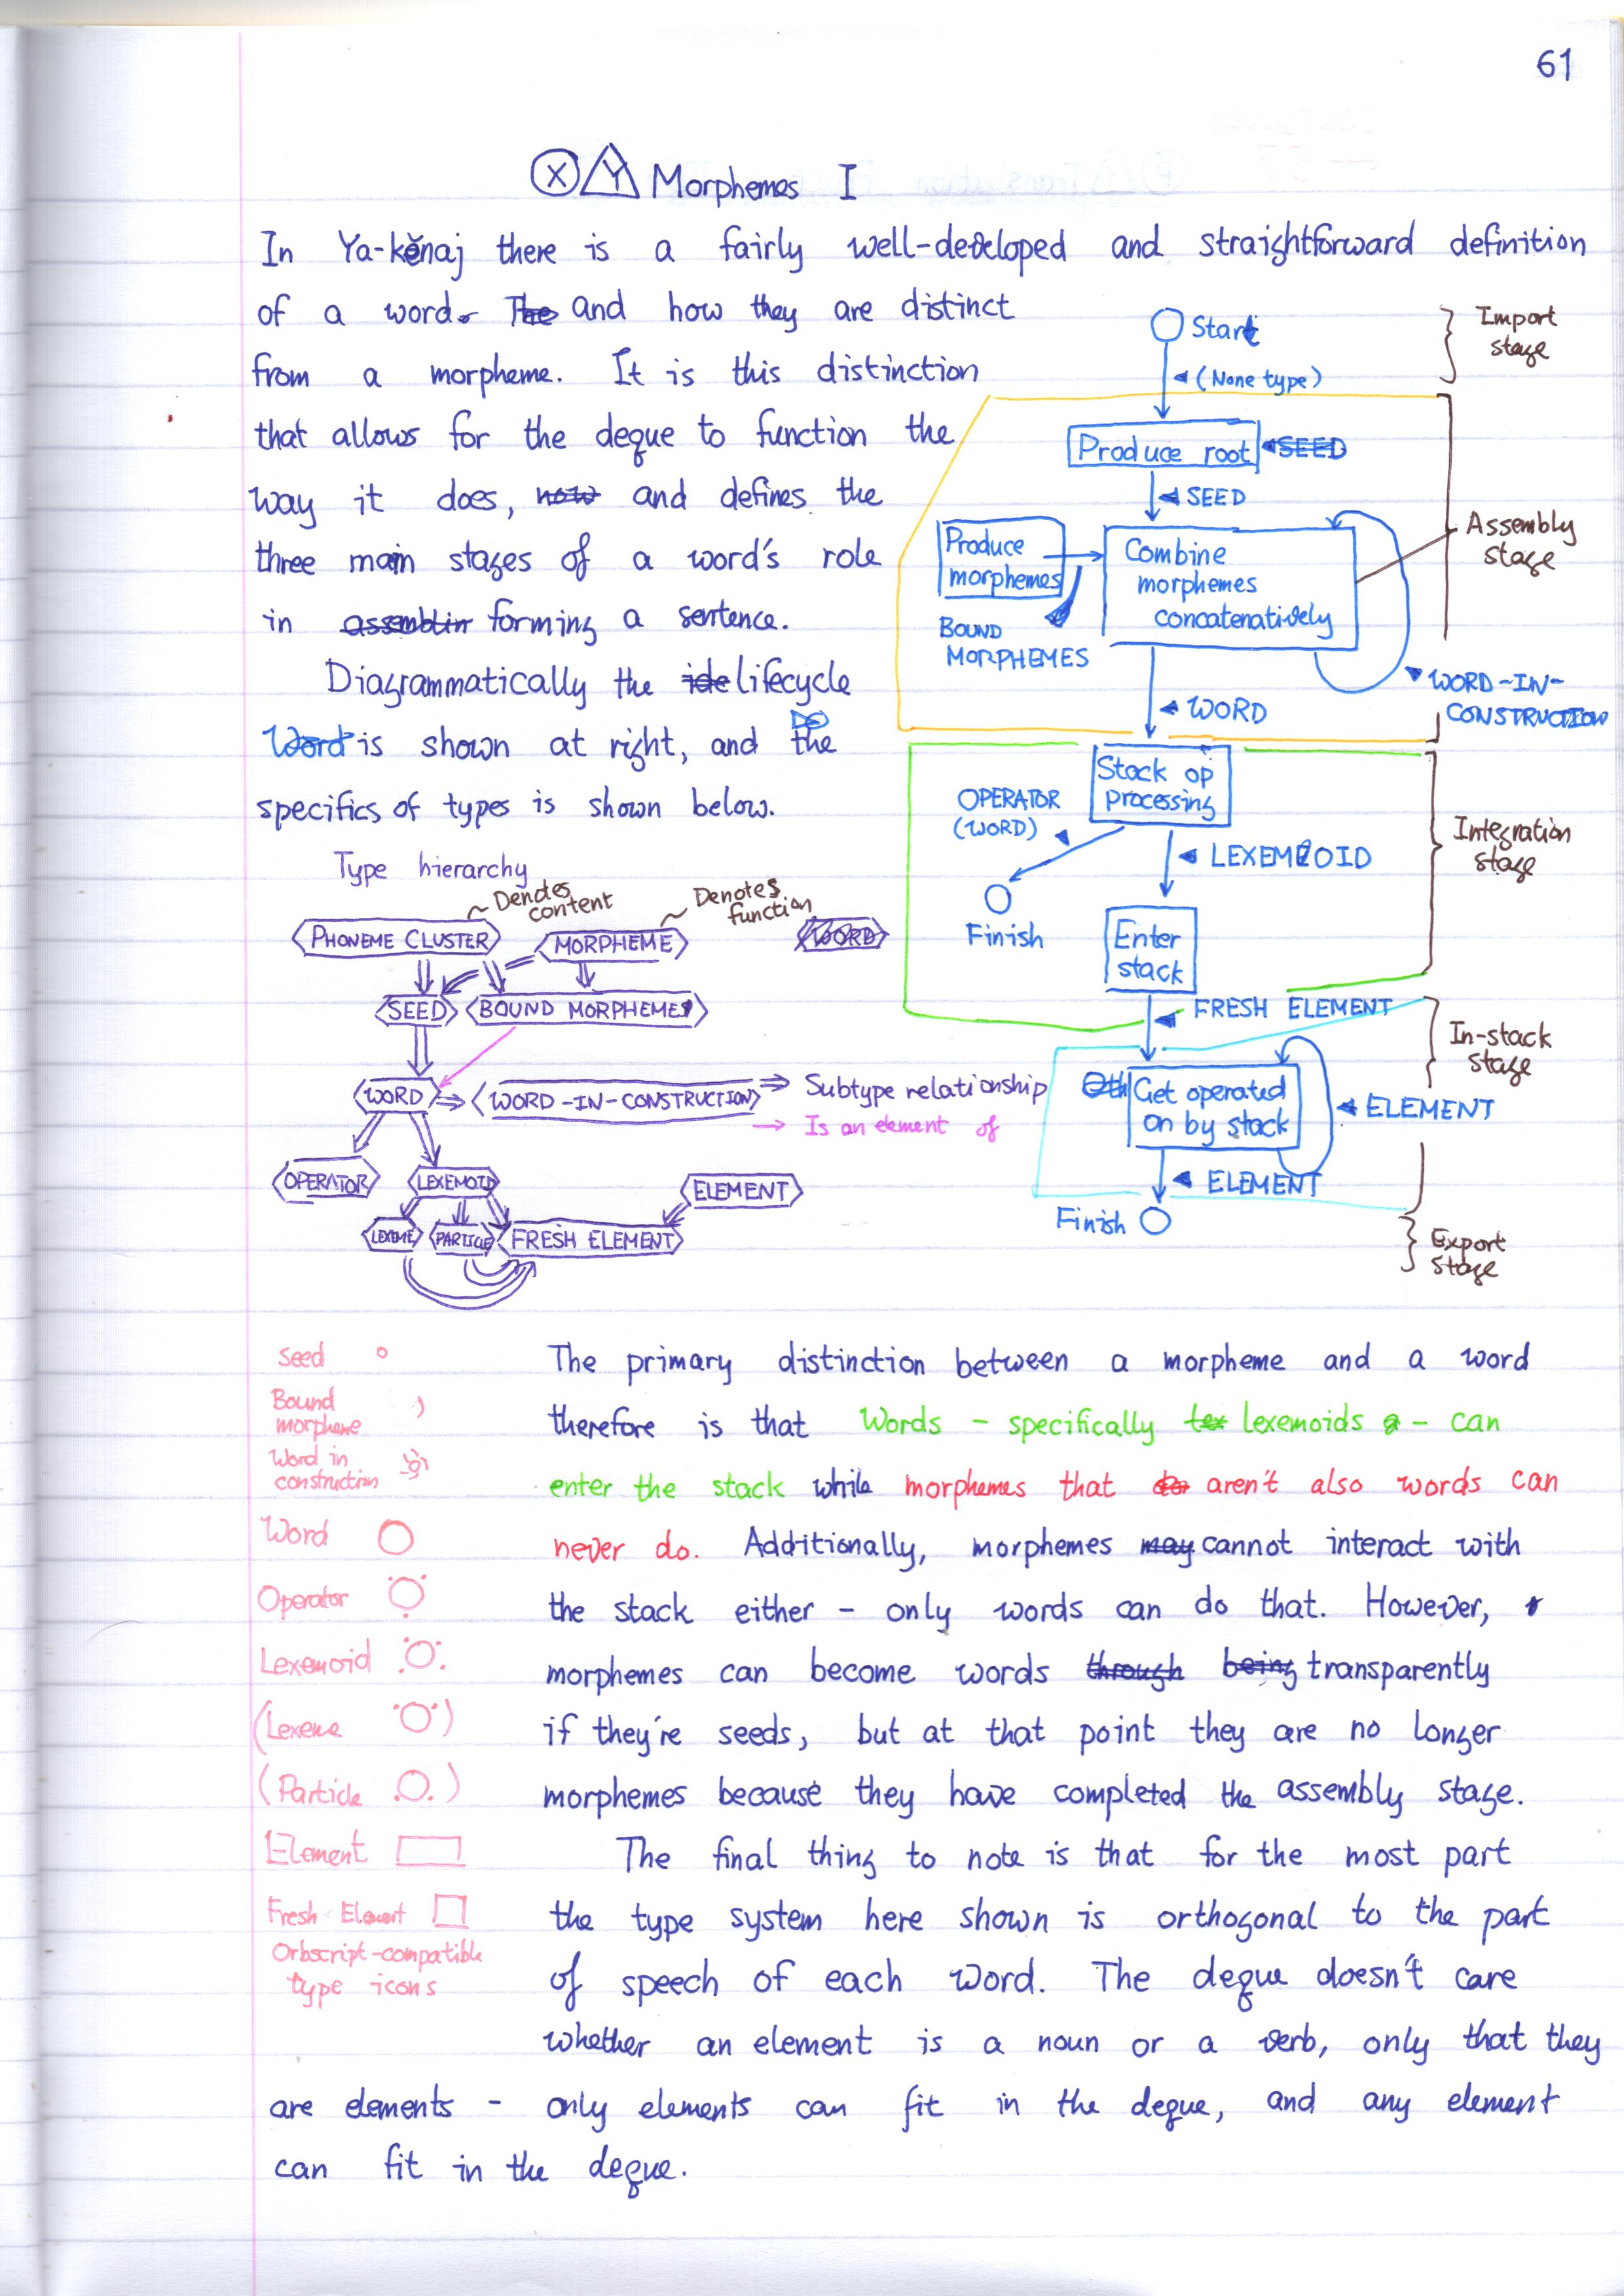 61
X Y Morphemes I
In Ya-kĕnaj there is a fairly well-developed and straightforward definition
of a word. The and how they are distinct
from a morpheme. It is this distinction
that allows for the deque to function the
way it does, now and defines the
three main stages of a word's role
in assemblin forming a sentence.
Diagrammatically the ide lifecycle
Word is shown at right, and the
specifics of types is shown below.
Start
(None type)
Produce root
SEED
SEED
Produce
morphemes
BOUND
MORPHEMES
Combine
morphemes
concatenatively
WORD-IN-
CONSTRUCTION
WORD
Stack op
processing
OPERATOR
(WORD)
LEXEMOID
Finish
Enter
stack
FRESH ELEMENT
Oth Get operated
on by stack
ELEMENT
ELEMENT
Finish
Import
stage
Assembly
stage
Integration
stage
In-stack
stage
Export
stage
Type hierarchy
~ Denotes
content
~ Denotes
function
PHONEME CLUSTER
MORPHEME
WORD
SEED
BOUND MORPHEME
WORD
WORD-IN-CONSTRUCTION
⇒ Subtype relationship
→ Is an element of
OPERATOR
LEXEMOID
ELEMENT
LEXEME
PARTICLE
FRESH ELEMENT
Seed
Bound
morpheme
Word in
construction
Word
Operator
Lexemoid
(Lexeme )
(Particle )
Element
Fresh Element
Orbscript-compatible
type icons
The primary distinction between a morpheme and a word
therefore is that Words - specifically lex lexemoids - can
enter the stack while morphemes that do aren't also words can
never do. Additionally, morphemes may cannot interact with
the stack either - only words can do that. However,
morphemes can become words through being transparently
if they're seeds, but at that point they are no longer
morphemes because they have completed the assembly stage.
The final thing to note is that for the most part
the type system here shown is orthogonal to the part
of speech of each word. The deque doesn't care
whether an element is a noun or a verb, only that they
are elements - only elements can fit in the deque, and any element
can fit in the deque.